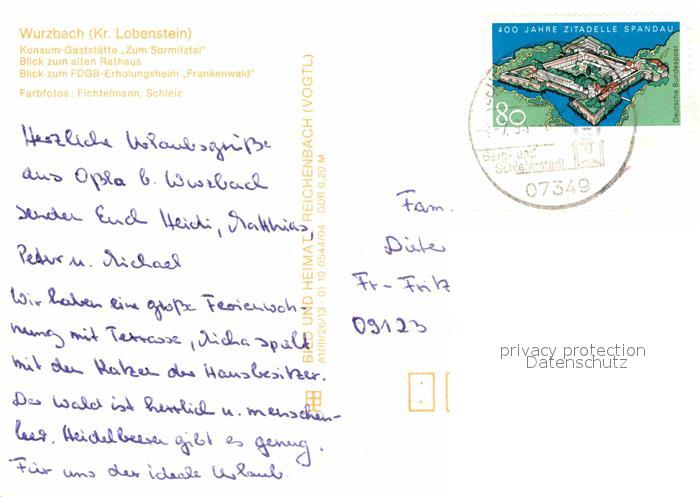 Wurzbach (Kr. Lobenstein)
Konsum-Gaststätte „Zum Sormitztal"
Blick zum alten Rathaus
Blick zum FDGB-Erholungsheim „Frankenwald"
Farbfotos: Fichtelmann, Schleiz
Herzliche Urlaubsgrüße
aus Oßla b. Wurzbach
senden Euch Heidi, Matthias,
Peter u. Michael
Wir haben eine große Ferienwoh-
nung mit Terrasse, Micha spielt
mit den Katzen der Hausbesitzer.
Der Wald ist herrlich u. menschen-
leer. Heidelbeeren gibt es genug.
Für uns der ideale Urlaub.
BILD UND HEIMAT REICHENBACH (VOGTL)
A1/III/26/13 01 10 0544/04 DDR 0,20 M
400 JAHRE ZITADELLE SPANDAU
80
Deutsche Bundespost
Berg- und
Schieferstadt
07349
Fam.
Dieter
Fr-Fritz
09123
privacy protection
Datenschutz